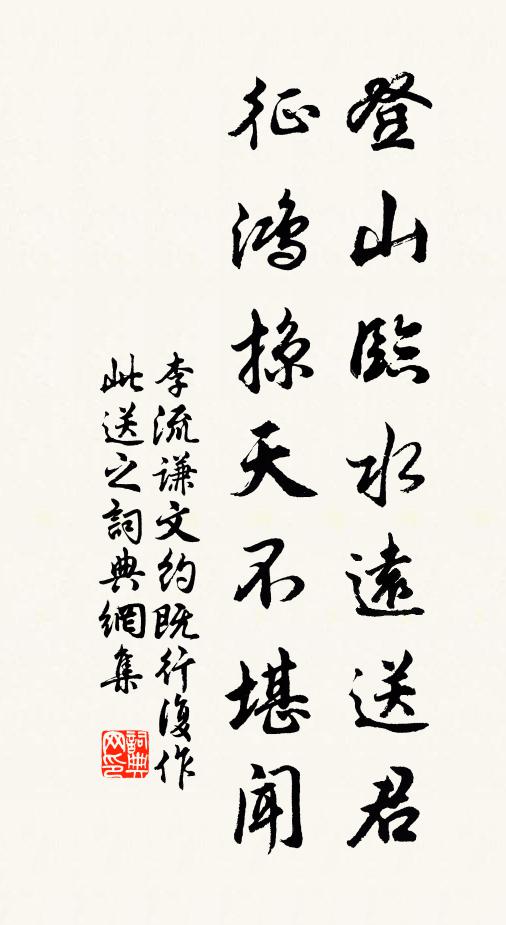 登山臨水遠送君
征鴻掠天不堪聞
李流謙文約既行復作
此送之詞典網集
詞典網印